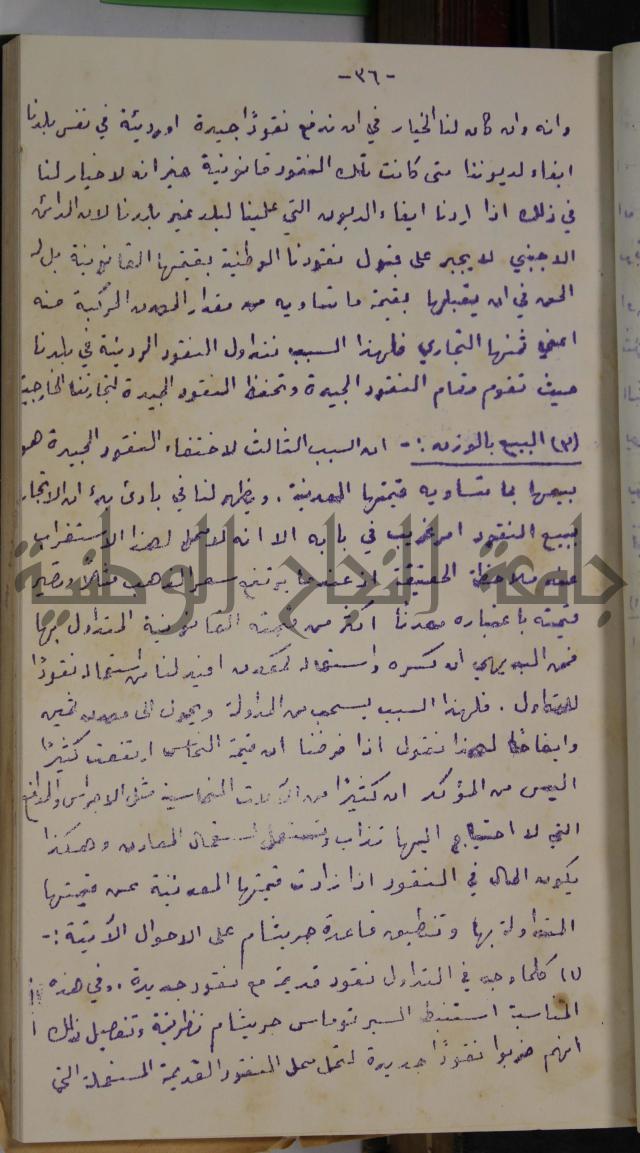 -٣٦-
وانه وان كان لنا الخيار في ان ندفع نقودًا جيدة او رديئة في نفس بلدنا
ايفاء لديوننا متى كانت تلك النقود قانونية غير انه لا خيار لنا
في ذلك اذا اردنا ايفاء الديون التي علينا لبلد غير بلدنا لان الدائن
الاجنبي لا يجبر على قبول نقودنا الوطنية بقيمتها القانونية بل له
الحق في ان يقبلها بقيمة ما تساويه من مقدار المعدن المركبة منه
اعني ثمنها التجاري فلهذا السبب تتداول النقود الرديئة في بلدنا
حيث تقوم مقام النقود الجيدة وتحفظ النقود الجيدة لتجارتنا الخارجية
(٣) البيع بالوزن :- ان السبب الثالث لاختفاء النقود الجيدة هو
بيعها بما تساويه قيمتها المعدنية . ويظهر لنا في بادئ بدء ان الاتجار
ببيع النقود امر غريب في بابه الا انه لا محل لهذا الاستغراب
عند ملاحظة الحقيقة اذ عندما يرتفع سعر الذهب مثلًا وتصير
قيمته باعتباره معدنًا اكثر من قيمته القانونية المتداول بها
فمن البديهي ان كسره واستعماله كمعدن افيد لنا من استعماله نقودًا
للتداول . فلهذا السبب يسحب من المداولة ويحول الى معدن ثمين
وايضاحًا لهذا نقول اذا فرضنا ان قيمة النحاس ارتفعت كثيرًا
اليس من المؤكد ان كثيرًا من الآلات النحاسية مثل الاجراس والمدافع
التي لا احتياج اليها تذاب وتستعمل استعمال المعادن وهكذا
يكون الحال في النقود اذا زادت قيمتها المعدنية عن قيمتها
المتداولة بها وتنطبق قاعدة جريشام على الاحوال الآتية :-
(١) كلما وجد في التداول نقود قديمة مع نقود جديدة . وفي هذه
المناسبة استنبط السير توماس جريشام نظريته وتفصيل ذلك
انهم ضربوا نقودًا جديدة لتحل محل النقود القديمة المستعملة التي
جامعة النجاح الوطنية